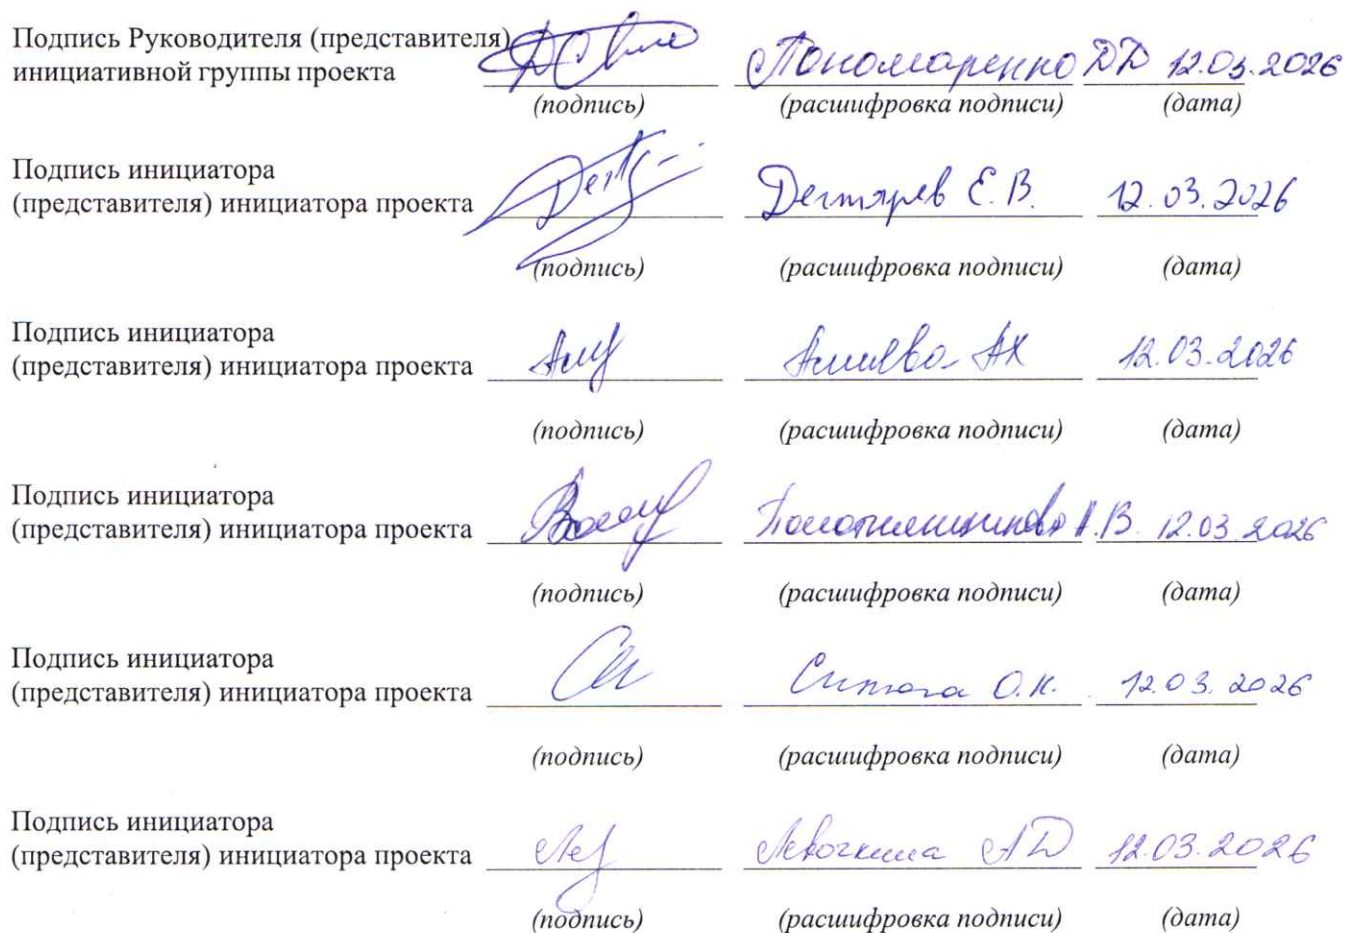 Подпись Руководителя (представителя)
инициативной группы проекта Пономаренко ДД 12.03.2026
(подпись) (расшифровка подписи) (дата)
Подпись инициатора
(представителя) инициатора проекта Дегтярев Е.В. 12.03.2026
(подпись) (расшифровка подписи) (дата)
Подпись инициатора
(представителя) инициатора проекта АХ 12.03.2026
(подпись) (расшифровка подписи) (дата)
Подпись инициатора
(представителя) инициатора проекта 12.03.2026
(подпись) (расшифровка подписи) (дата)
Подпись инициатора
(представителя) инициатора проекта О.Н. 12.03.2026
(подпись) (расшифровка подписи) (дата)
Подпись инициатора
(представителя) инициатора проекта Левочкина АД 12.03.2026
(подпись) (расшифровка подписи) (дата)